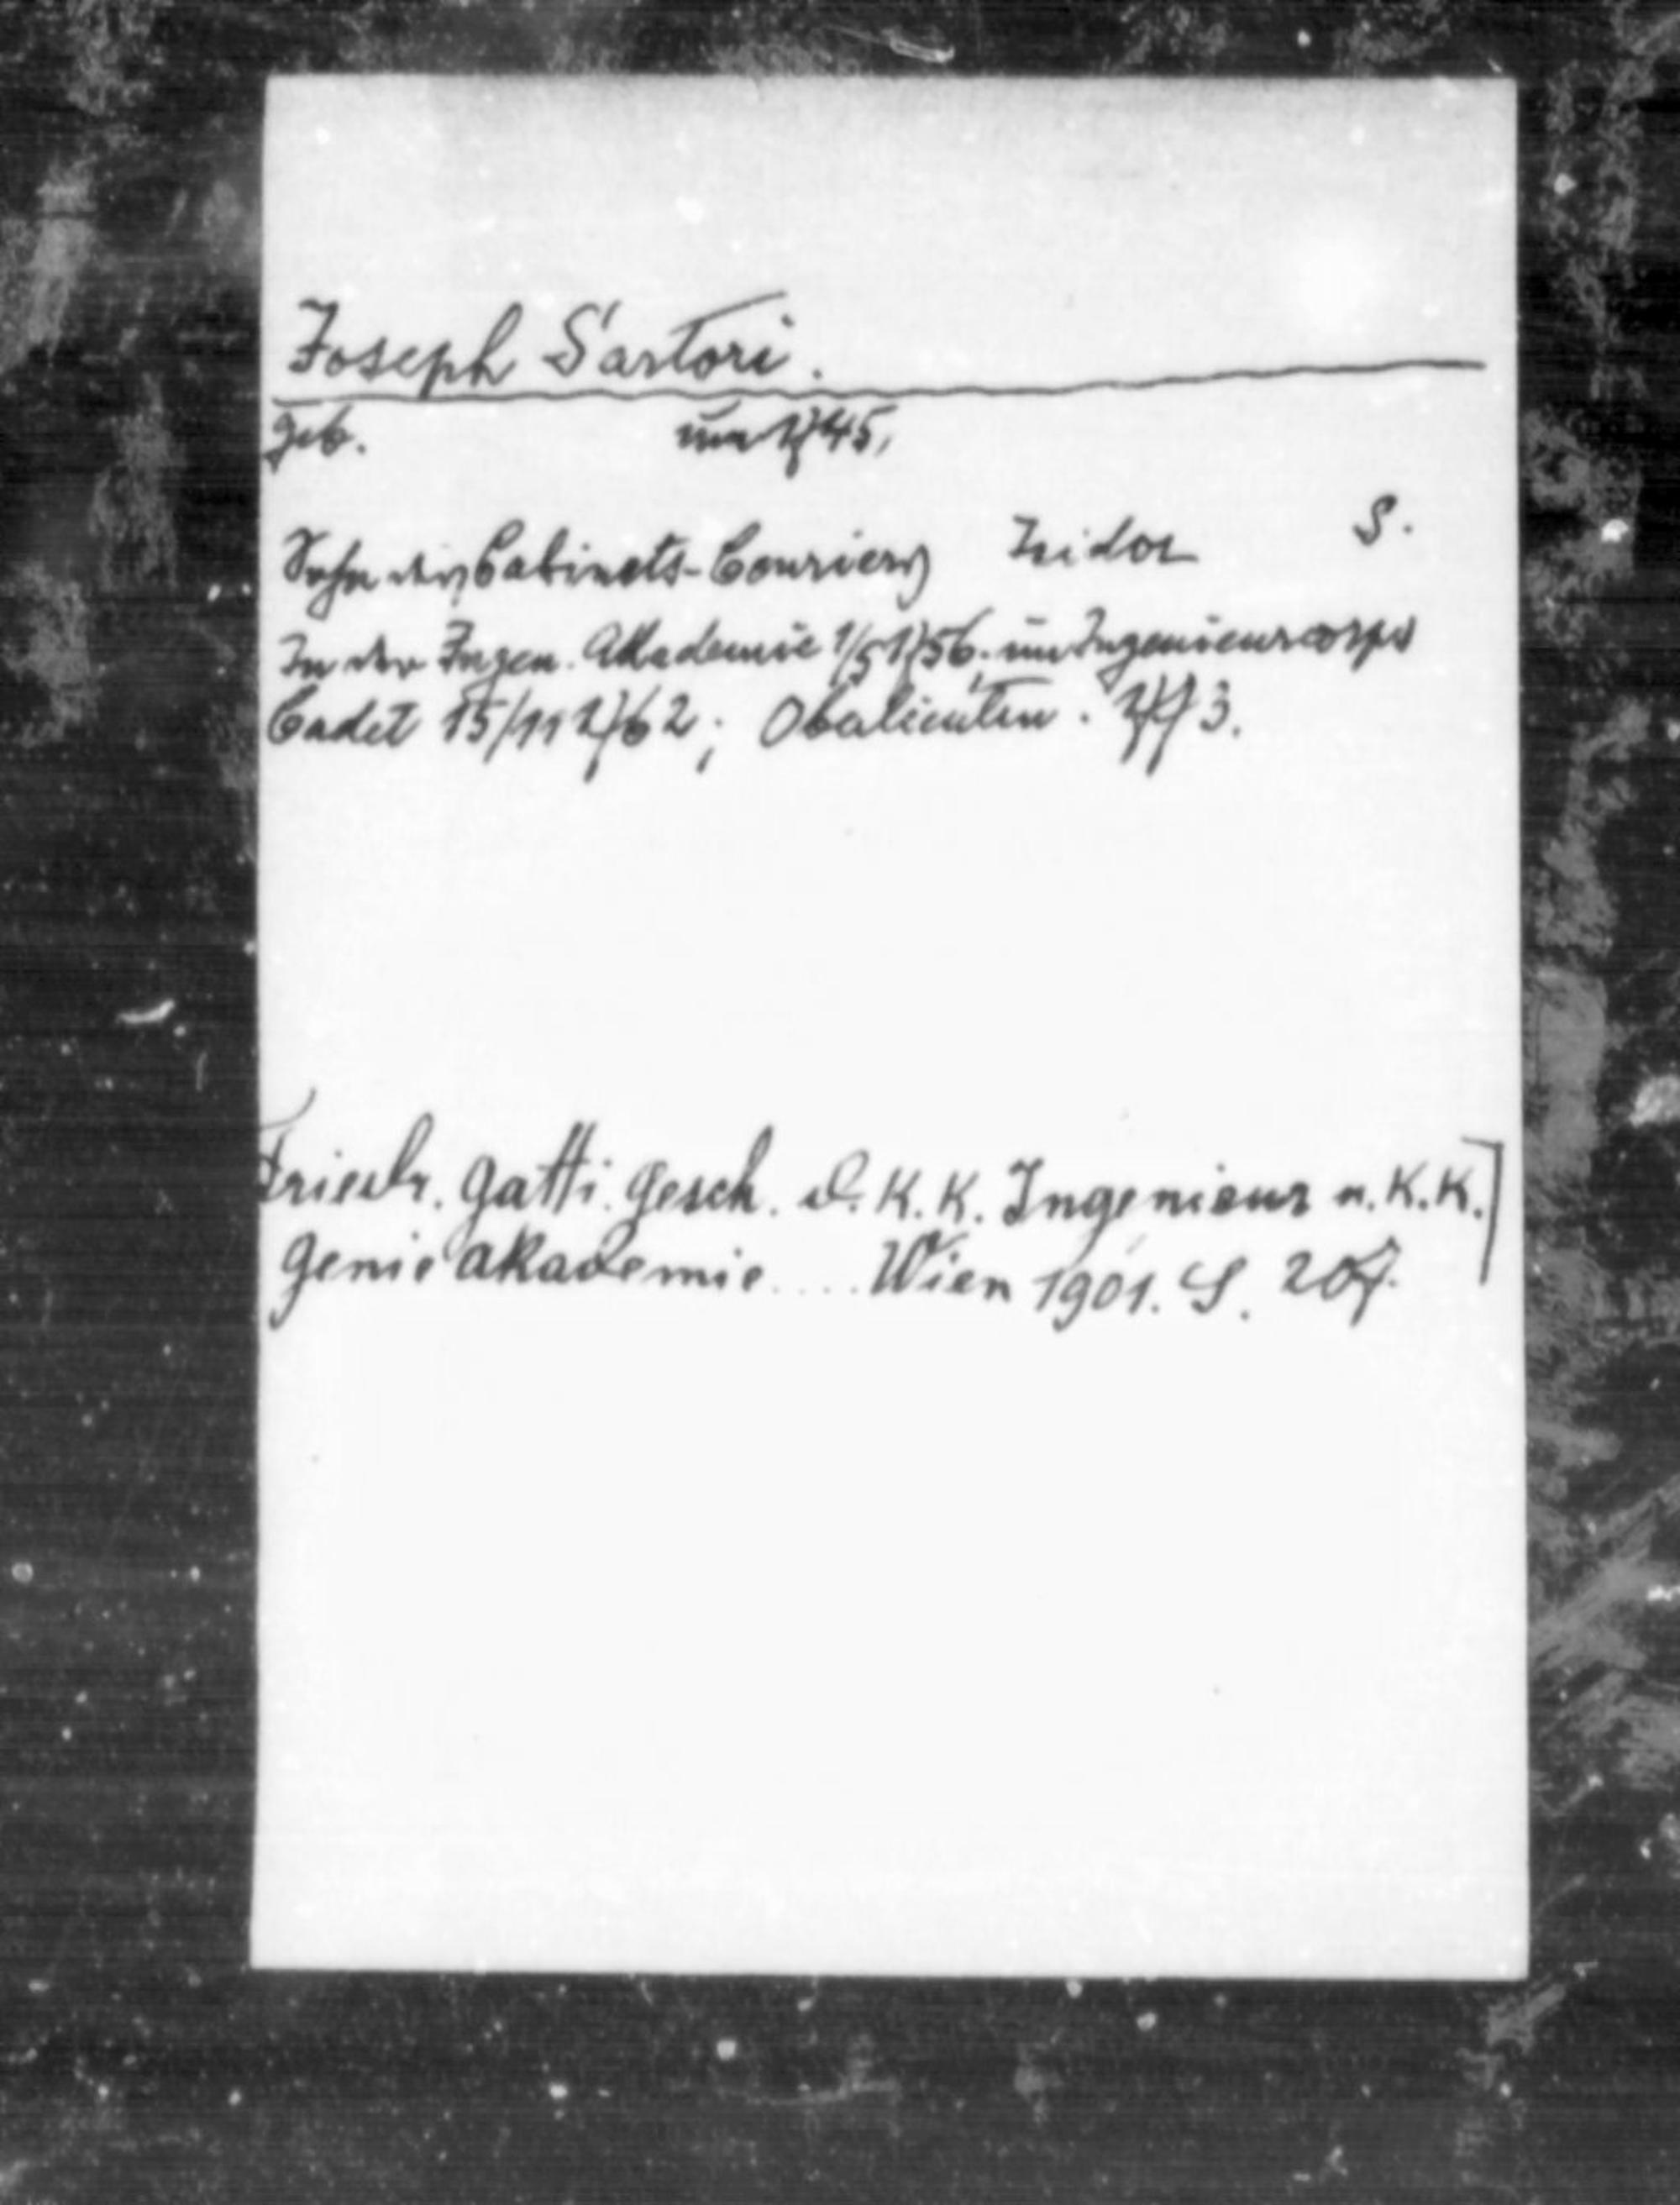 Joseph Sartori.
geb. um 1745,
Sohn des Cabinets-Couriers Isidor S.
In der Ingen. Akademie 1/5 1756. im Ingenieurcorps
Cadet 15/11 1762; Oberlieutn. 1773.
Friedr. Gatti. Gesch. d. K. K. Ingenieur u. K. K.]
Genie Akademie .... Wien 1901. S. 207.